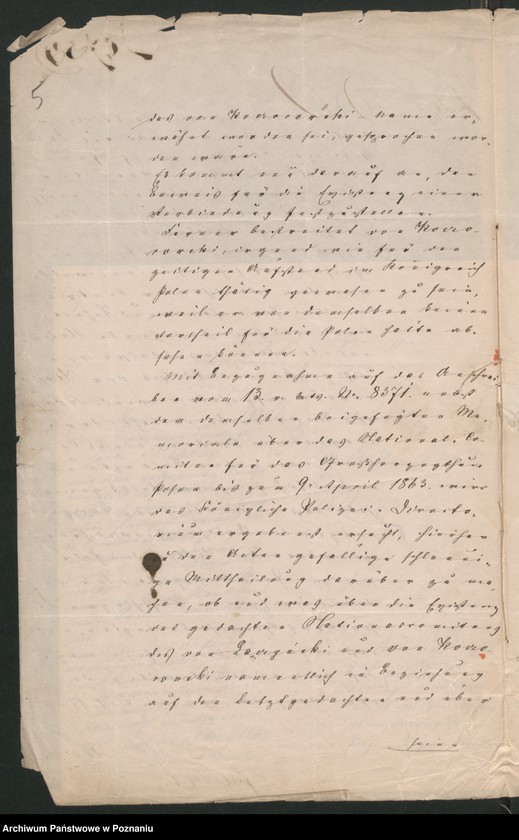 5
des von Kosinowski Name er-
wähnt worden sei, gesprochen wor-
den wäre.
Es kommt nun darauf an, den
Beweis für die Existenz einer
Verbindung festzustellen.
Ferner bestreitet von
irgend wie für den
zeitigen Aufstand im Königreich
Polen thätig gewesen zu sein,
weil er von demselben keinen
Vortheil für die Polen hatte ab-
sehen können.
Mit Bezugnahme auf das Anschrei-
ben vom 13. v. Mts. No. 8371. nebst
dem demselben beigefügten Me-
moriale über das National-Co-
mitee für das Großherzogthum
Posen bis zum 9. April 1863. wird
das Königliche Polizei-Directo-
rium ergebenst ersucht, hierher
zu den Acten gefällige schleuni-
ge Mittheilung darüber zu ma-
chen, ob und was über die Existenz
des gedachten Nationalcomitees
des von und von
namentlich in Beziehung
auf den Letztgedachten und über
seine
Archiwum Państwowe w Poznaniu